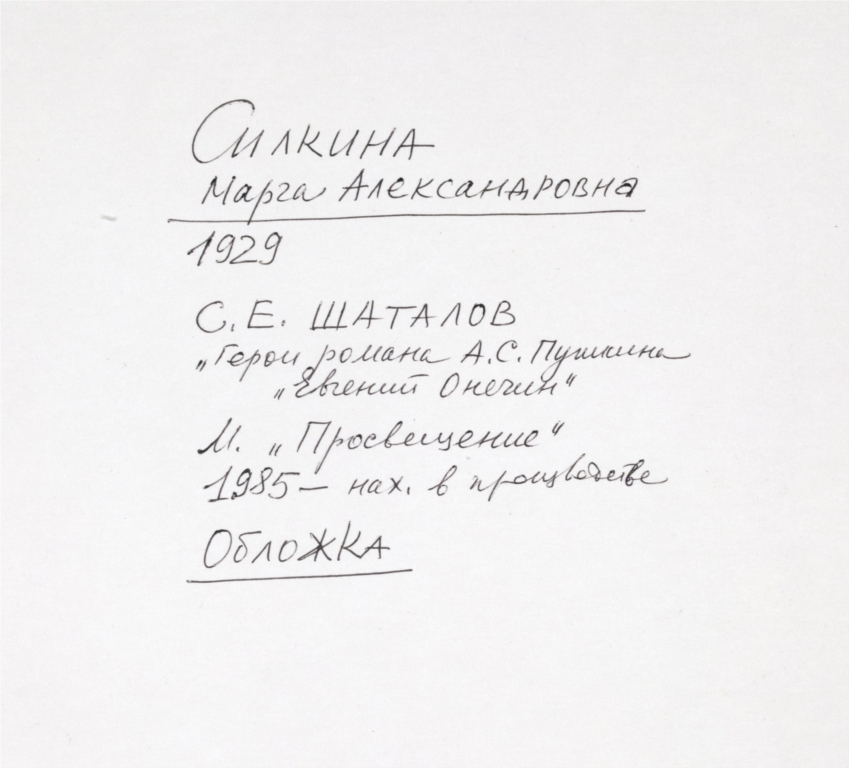 СИЛКИНА
Марга АЛЕКСАНДРОВНА
1929
С. Е. ШАТАЛОВ
„Герои романа А.С. Пушкина
„Евгений Онегин"
М. „Просвещение"
1985 — нах. в производстве
ОБЛОЖКА